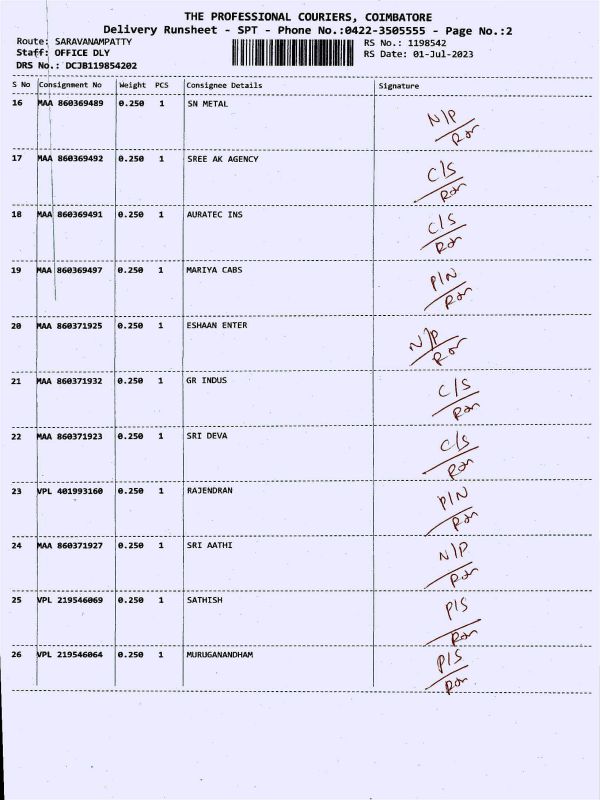 THE PROFESSIONAL COURIERS, COIMBATORE
Delivery Runsheet - SPT - Phone No.:0422-3505555 - Page No.:2
Route: SARAVANAMPATTY RS No.: 1198542
Staff: OFFICE DLY RS Date: 01-Jul-2023
DRS No.: DCJB119854202
S No Consignment No Weight PCS Consignee Details Signature
16 MAA 860369489 0.250 1 SN METAL N/P
17 MAA 860369492 0.250 1 SREE AK AGENCY C/S
18 MAA 860369491 0.250 1 AURATEC INS C/S
19 MAA 860369497 0.250 1 MARIYA CABS P/N
20 MAA 860371925 0.250 1 ESHAAN ENTER N/P
21 MAA 860371932 0.250 1 GR INDUS C/S
22 MAA 860371923 0.250 1 SRI DEVA C/S
23 VPL 401993160 0.250 1 RAJENDRAN P/N
24 MAA 860371927 0.250 1 SRI AATHI N/P
25 VPL 219546069 0.250 1 SATHISH P/S
26 VPL 219546064 0.250 1 MURUGANANDHAM P/S